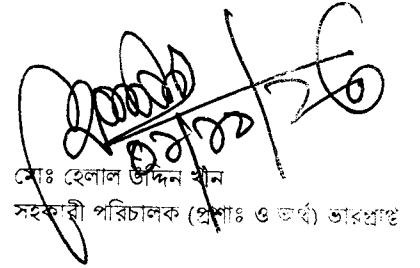 মোঃ হেলাল উদ্দিন খান
সহকারী পরিচালক (প্রশাঃ ও অর্থ) ভারপ্রাপ্ত